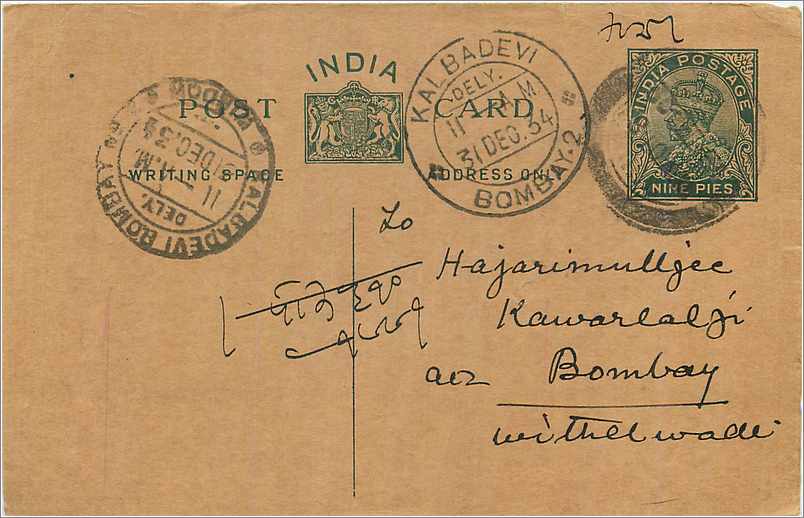 INDIA
POST CARD
WRITING SPACE ADDRESS ONLY
INDIA POSTAGE
NINE PIES
KALBADEVI
DELY.
11 AM
31 DEC. 34
BOMBAY-2
KALBADEVI BOMBAY
DELY.
11
DEC. 34
To
Hajarimulljee
Kawarlalji
Bombay
withelwadi